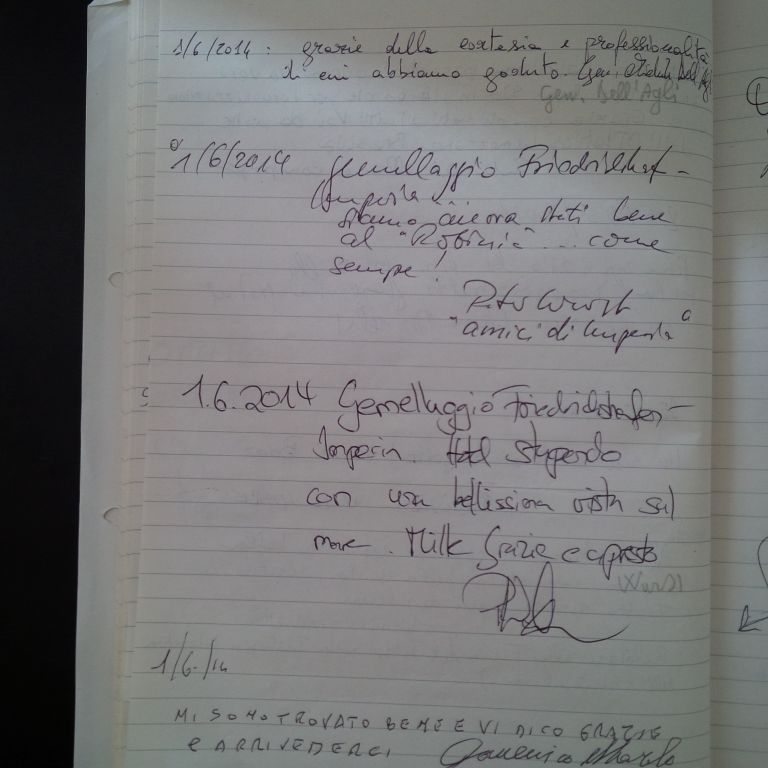 1/6/2014 : grazie della cortesia e professionalità
di cui abbiamo goduto. Gen. Dell'Agli
Gen. Dell'Agli
1/6/2014 gemellaggio Friedrichshaf-
Imperia
siamo ancora stati bene
al "Robinia" ... come
sempe!
"amici di Imperia"
1.6.2014 Gemellaggio Friedrichshafen-
Imperia. Hotel stupendo
con una bellissima vista sul
mare. Mille Grazie e a presto
1/6/14
MI SONO TROVATO BENE E VI DICO GRAZIE
E ARRIVEDERCI Domenico